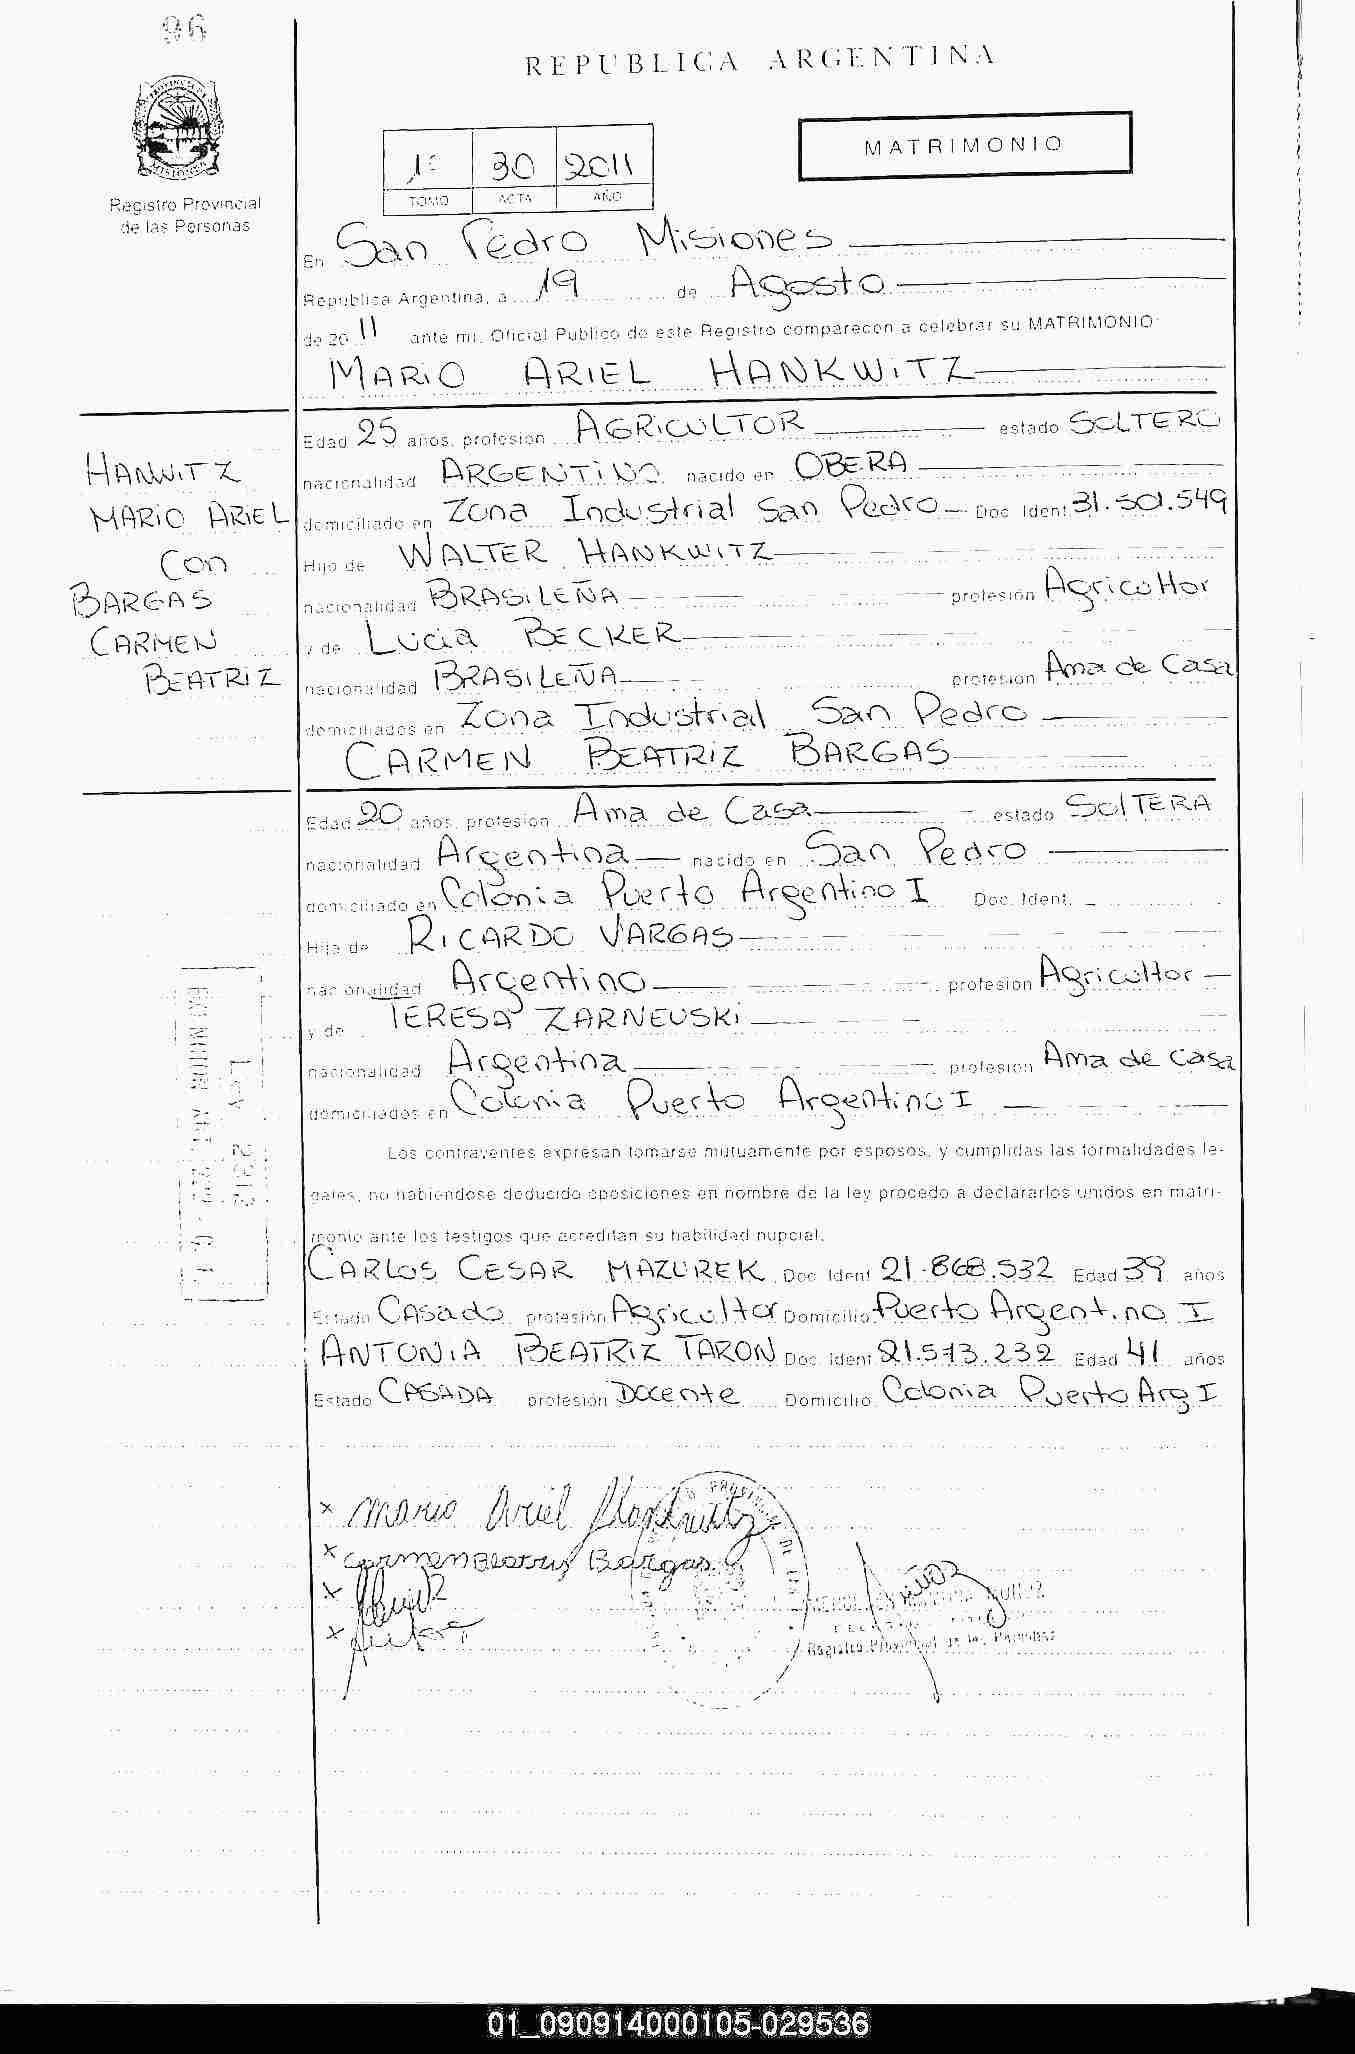 96
REPUBLICA ARGENTINA
MATRIMONIO
1º 30 2011
TOMO ACTA AÑO
Registro Provincial
de las Personas
En San Pedro Misiones
Republica Argentina, a 19 de Agosto
de 20 11 ante mi, Oficial Publico de este Registro comparecen a celebrar su MATRIMONIO
MARIO ARIEL HANKWITZ
Edad 25 años, profesion AGRICULTOR estado SOLTERO
HANWITZ
MARIO ARIEL
Con
BARGAS
CARMEN
BEATRIZ
nacionalidad ARGENTINO nacido en OBERA
domiciliado en Zona Industrial San Pedro Doc. Ident. 31.501.549
Hijo de WALTER HANKWITZ
nacionalidad BRASILEÑA profesión Agricultor
y de Lucia BECKER
nacionalidad BRASILEÑA profesion Ama de Casa
domiciliados en Zona Industrial San Pedro
CARMEN BEATRIZ BARGAS
Edad 20 años, profesion Ama de Casa estado SolTERA
nacionalidad Argentina nacido en San Pedro
domiciliado en Colonia Puerto Argentino I Doc. Ident.
Hija de RICARDO VARGAS
nacionalidad Argentino profesion Agricultor
y de TERESA ZARNEUSKI
nacionalidad Argentina profesion Ama de Casa
domiciliados en Colonia Puerto Argentino I
Los contrayentes expresan tomarse mutuamente por esposos, y cumplidas las formalidades le-
gales, no habiendose deducido oposiciones en nombre de la ley procedo a declararlos unidos en matri-
monio ante los testigos que acreditan su habilidad nupcial.
CARLOS CESAR MAZUREK Doc. Ident 21.868.532 Edad 39 años
Estado Casado profesión Agricultor Domicilio Puerto Argentino I
ANTONIA BEATRIZ TARON Doc. Ident 21.573.232 Edad 41 años
Estado CASADA profesión Docente Domicilio Colonia Puerto Arg I
Mario Ariel Hankwitz
Carmen Beatriz Bargas
Registro Provincial de las Personas
01_090914000105-029536